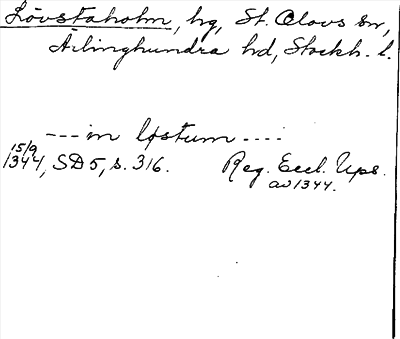 Lövstaholm, hg, St. Olovs sn,
Ärlinghundra hd, Stockh. l.
---in løstum----
15/9
1344, SD5, s. 316. Reg. Eccl. Ups.
av 1344.